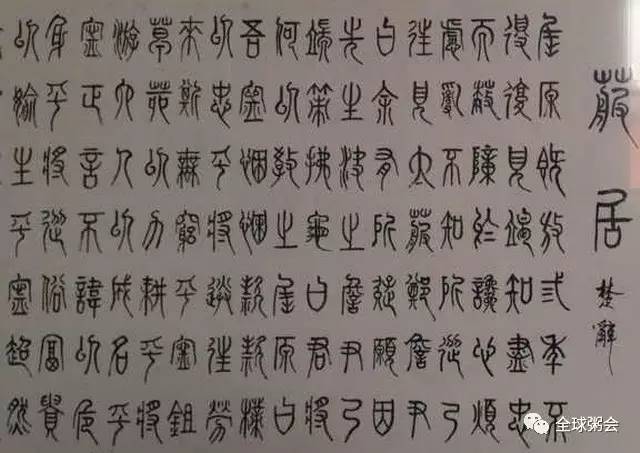 蔔居
楚辭
屈原既放弎年不
得復見竭知盡忠
而蔽障於讒心煩
慮亂不知所從乃
往見太蔔鄭詹尹
曰余有所疑願因
先生決之詹尹乃
端策拂龜曰君將
何以教之屈原曰
吾寧悃悃款款樸
以忠乎將送往勞
來斯無窮乎寧鉏
草茅以力耕乎將
游大人以成名乎
寧正言不諱以危
身乎將從俗富貴
以媮生乎寧超然
全球粥会